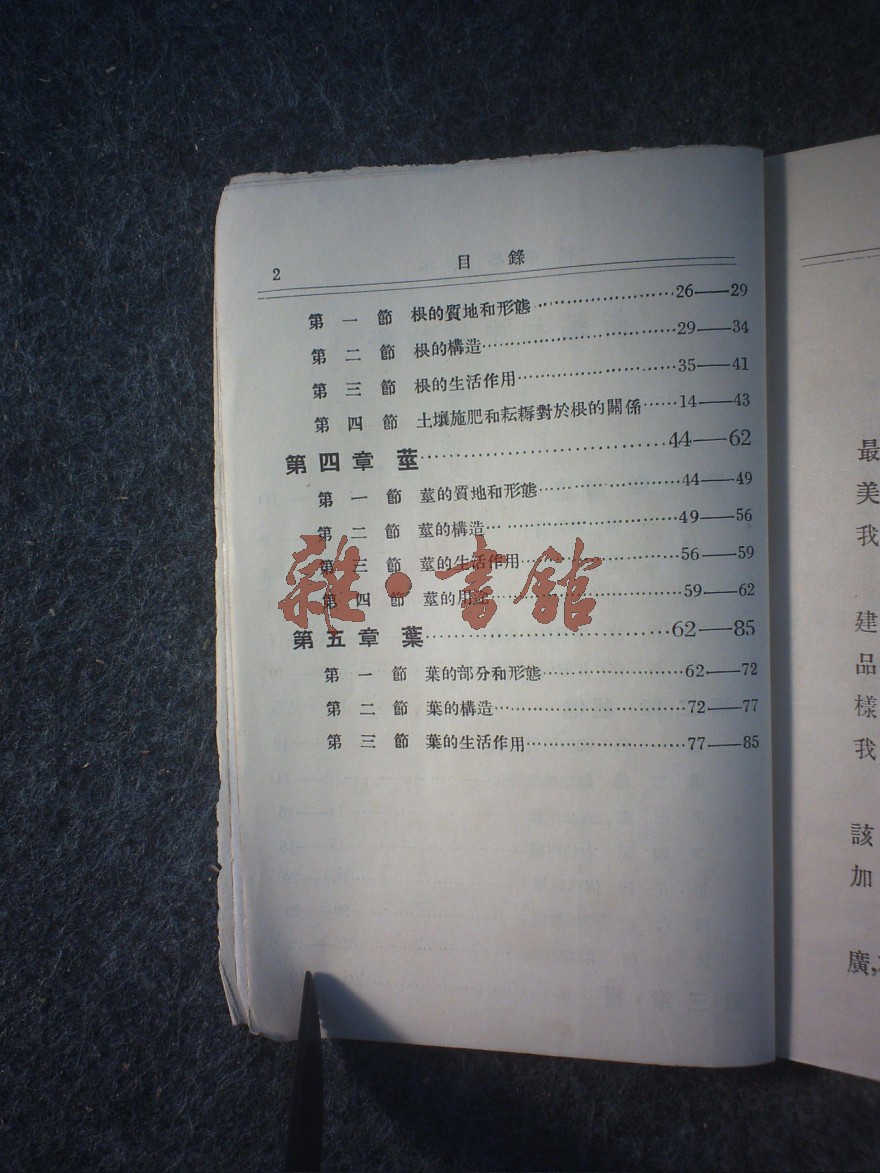 2 目錄
第一節 根的質地和形態……………………26——29
第二節 根的構造……………………………29——34
第三節 根的生活作用………………………35——41
第四節 土壤施肥和耘耨對於根的關係……14——43
第四章 莖……………………………………44——62
第一節 莖的質地和形態……………………44——49
第二節 莖的構造……………………………49——56
第三節 莖的生活作用………………………56——59
第四節 莖的用途……………………………59——62
第五章 葉……………………………………62——85
第一節 葉的部分和形態……………………62——72
第二節 葉的構造……………………………72——77
第三節 葉的生活作用………………………77——85
雜·書館
最
美
我
建
品
樣
我
該
加
廣,